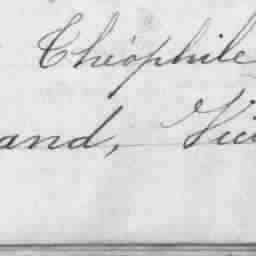 Théophile
and, Vic